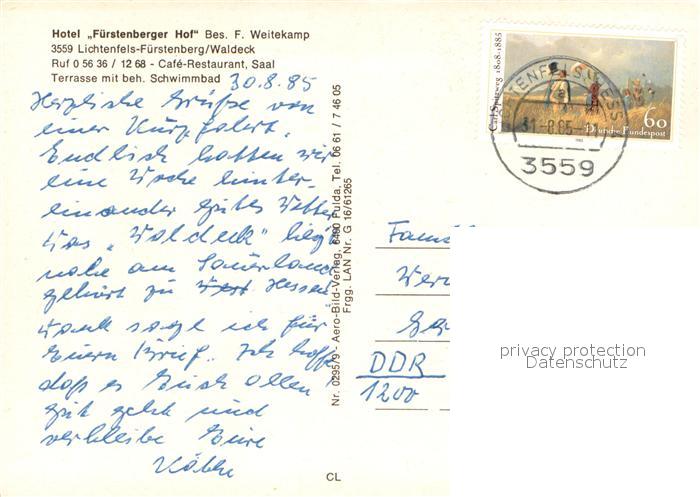 Hotel „Fürstenberger Hof" Bes. F. Weitekamp
3559 Lichtenfels-Fürstenberg/Waldeck
Ruf 0 56 36 / 12 68 - Café-Restaurant, Saal
Terrasse mit beh. Schwimmbad
30.8.85
Herzliche Grüße von
einer Kurzfahrt.
Endlich hatten wir
eine Woche hinter-
einander gutes Wetter
Das „Waldeck" liegt
nahe am Sauerland
gehört zu Hessen
Dank sage ich für
Euern Brief. Ich hoffe
daß es Euch allen
gut geht und
verbleibe Eure
Nr. 029579 - Aero-Bild-Verlag, 6400 Fulda, Tel. 06 61 / 7 46 05
Frgg. LAN Nr. G 16/61265
CL
Carl Spitzweg 1808-1885
60
Deutsche Bundespost
LICHTENFELS, HESS
-8.85-
3559
DDR
1200
privacy protection
Datenschutz